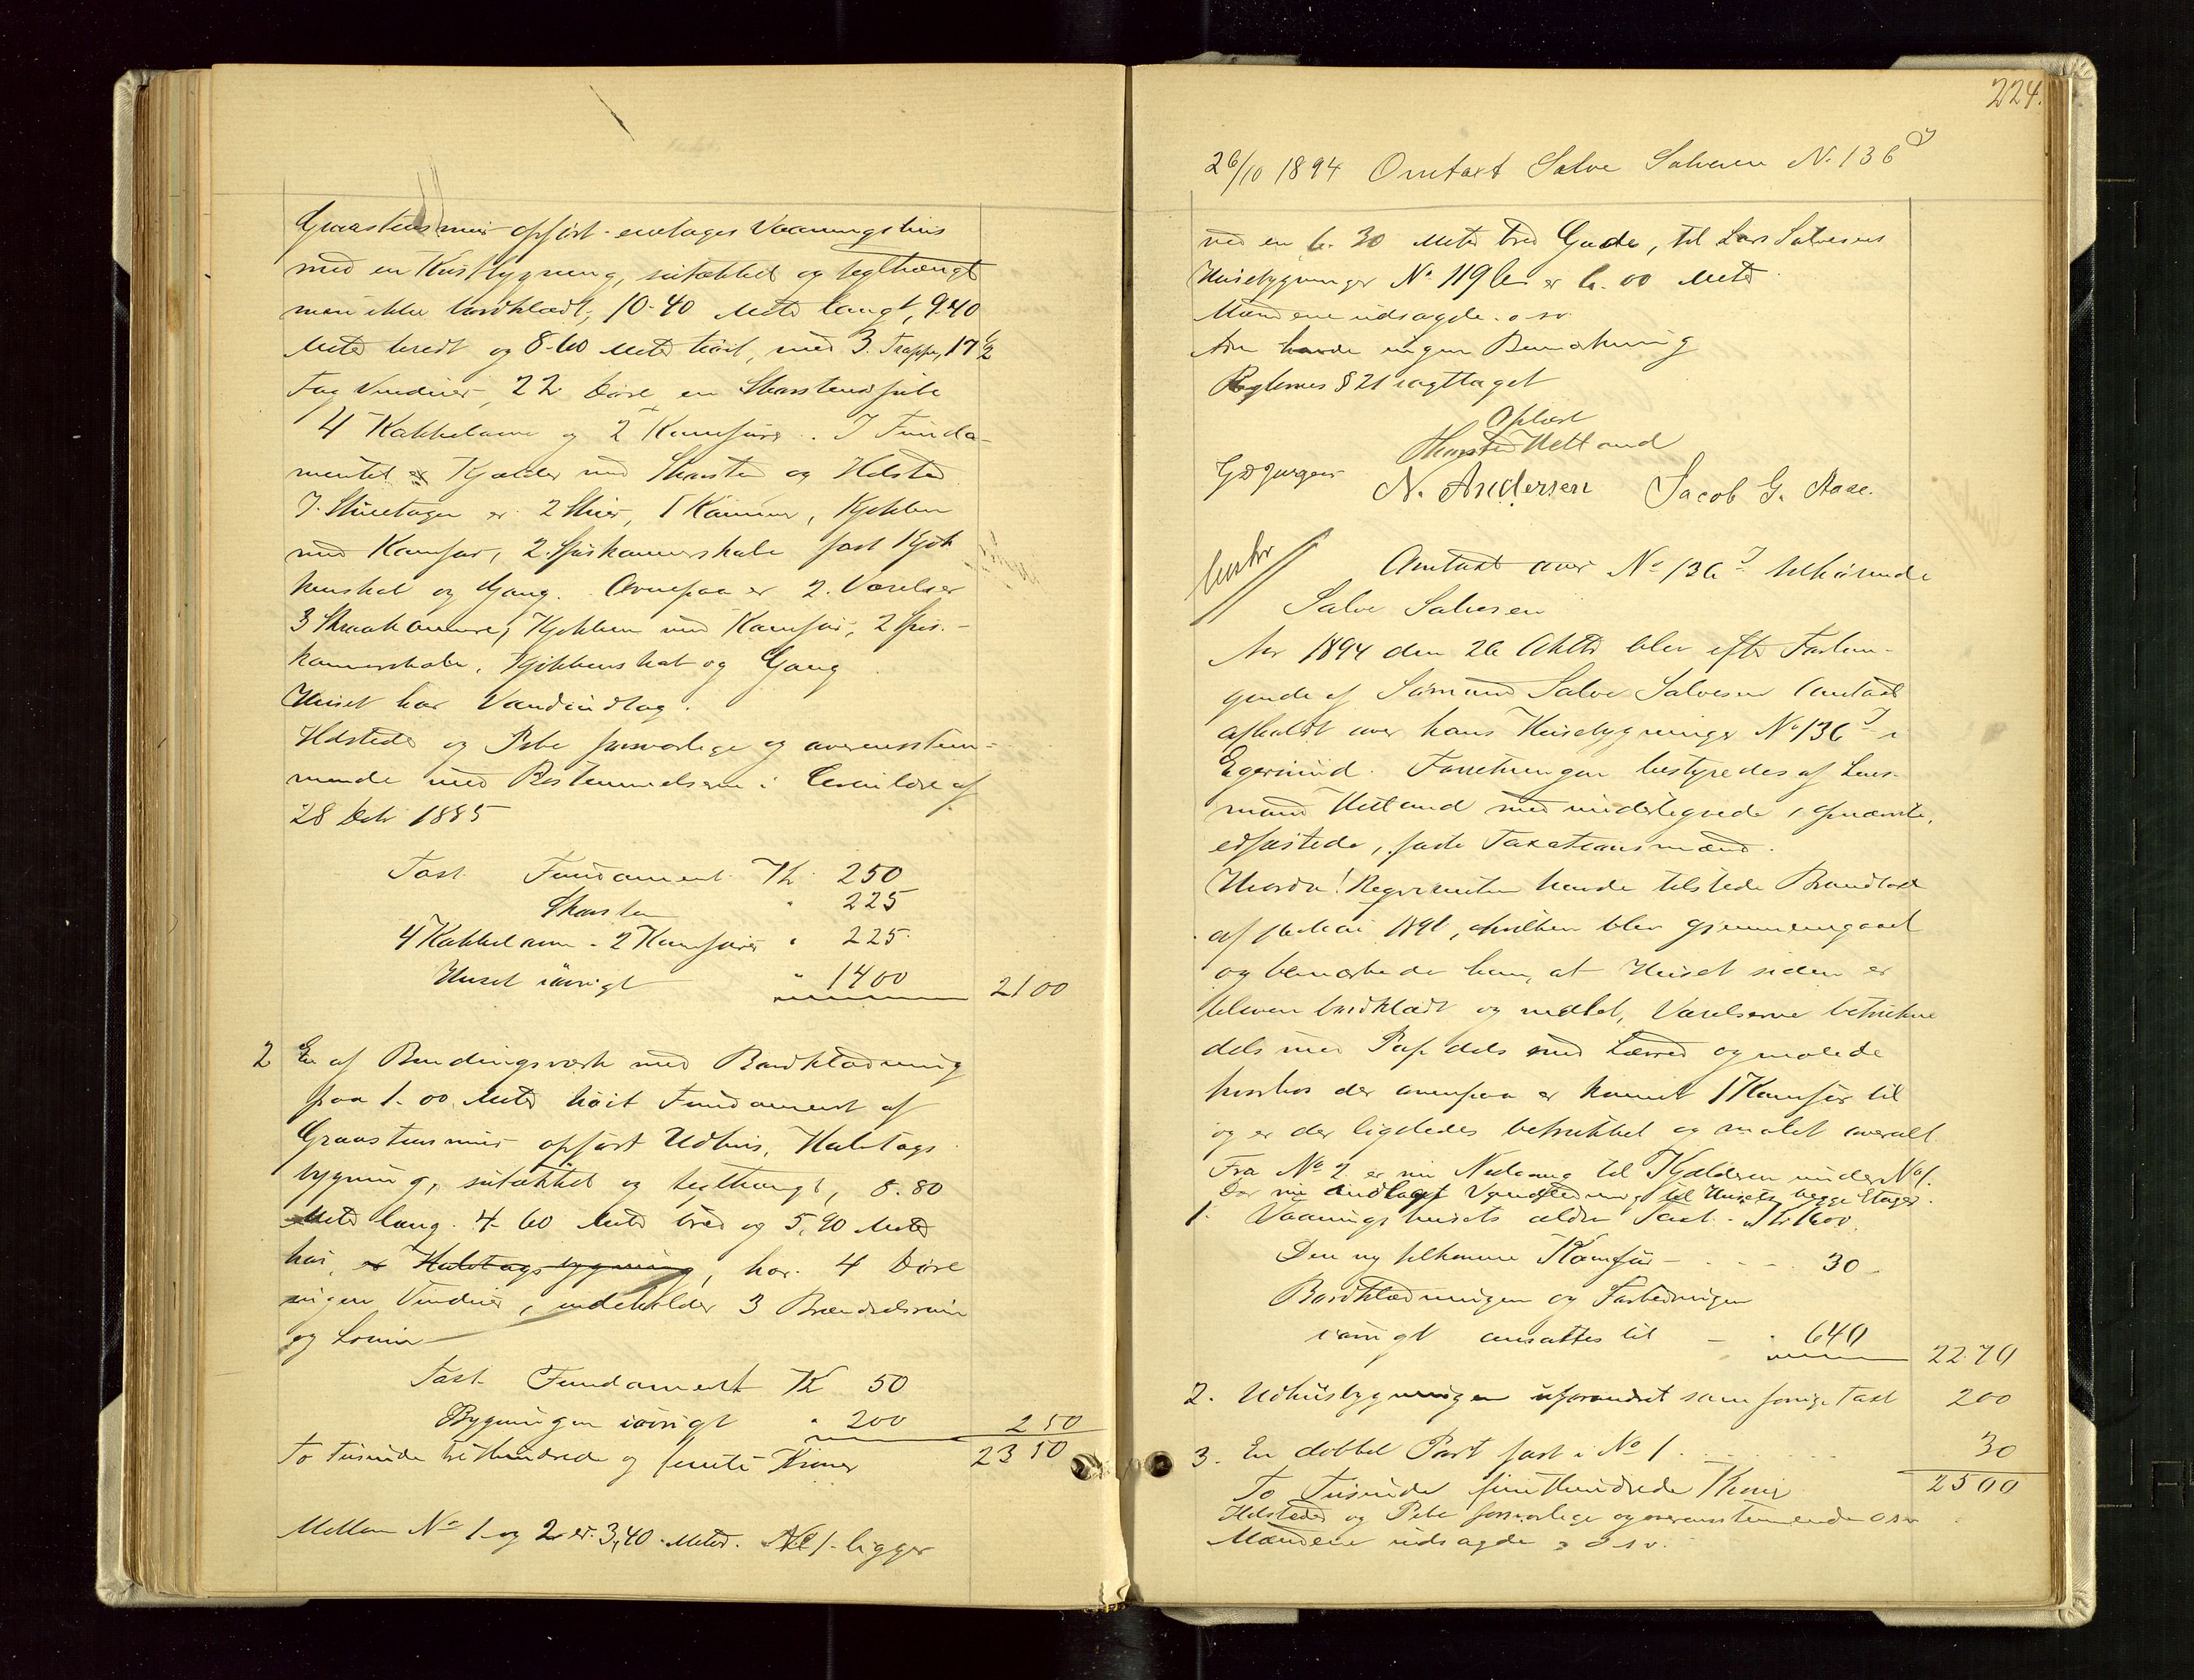 Graastensmur opført enetages Vaaningshus
med en Kvistbygning, sutækket og teglhængt
men ikke bordklædt, 10.40 Meter langt, 9.40
Meter bredt og 8.60 Meter høit, med 3 Trapper, 17 1/2
Fag Vinduer, 22 Døre en Skorstenspibe
4 Kakkelovne og 2 Komfure. I Funda-
mentet er Kjælder med Skorsten og Ildsted
I Stueetagen er 2 Stuer, 1 Kammer, Kjøkken
med Komfur, 2 Spiskammerskabe fast Kjøk
kenskab og Gang. Ovenpaa er 2 Værelser
3 Skraakamre, Kjøkken med Komfur, 2 Spis-
kammerskabe, Kjøkkenskab og Gang
Huset har Vandindlag.
Ildsteder og Pibe forsvarlige og overensstem-
mende med Bestemmelserne i Circulære af
28 Debr 1885
Taxt Fundament Kr. 250
Skorsten " 225
4 Kakkelovne - 2 Komfurer " 225
Huset iøvrigt " 1400 2100
2 En af Bindingsværk med Bordklædning
paa 1.00 Meter høit Fundament af
Graastensmur opført Udhus, Halvtags
bygning, sutækket og teglhængt, 8.80
Meter lang. 4.60 Meter bred og 5,90 Meter
høi, er Halvtagsbygning, har 4 Døre
ingen Vinduer, indeholder 3 Brændselsrum
og
Taxt Fundament Kr 50
Bygningen iøvrigt " 200 250
To tusinde trehundrede og femti Kroner 2350
Mellem No 1 og 2 er 3,40 Meter. No 1 ligger
224.
26/10 1894 Omtaxt Salve Salvesen No 136 J
ved en 6.30 Meter bred Gade, til Lars Salvesens
Husebygninger No 119 er 6.00 Meter
Mændene udsagde o s v
havde ingen Bemærkning
Reglernes § 21 iagttaget
Oplæst
Hetland
N. Andersen Jacob G. Aase.
Omtaxt over No 136 J tilhørende
Salve Salvesen
Aar 1894 den 26 Oktbr blev efter Forlan-
gende af Sømand Salve Salvesen Omtaxt
afholdt over hans Husebygninger No 136 J i
Egersund. Forretningen bestyredes af Lens-
mand Hetland med undertegnede opnævnte,
edfæstede, faste Taxationsmænd.
Hvorda! Reqvirenten havde tilstede Brandtaxt
af 16 Mai 1891, hvilken blev gjennemgaaet
og bemærkede han, at Huset siden er
bleven bordklædt og malet, Værelserne betrukne
dels med Pap dels med Lærred og malede
hvorhos der ovenpaa er kommet 1 Komfur til
og er der ligeledes betrukket og malet overalt
Fra No 2 er nu Nedgang til Kjælderen under No 1.
Der nu indlagt Vandledning til Husets begge Etager.
1. Vaaningshusets ældre Taxt - Kr 1600
Den ny tilkomne Komfur - . . . . 30
Bordklædningen og Forbedringen
iøvrigt ansættes til - . 640 2270
2. Udhusbygningen uforandret som forrige Taxt 200
3. En dobbel Port fast i No 1. . . . . 30
To Tusinde femhundrede Kroner 2500
Ildsteder og Pibe forsvarlige og overensstemmende osv
Mændene udsagde o s v.